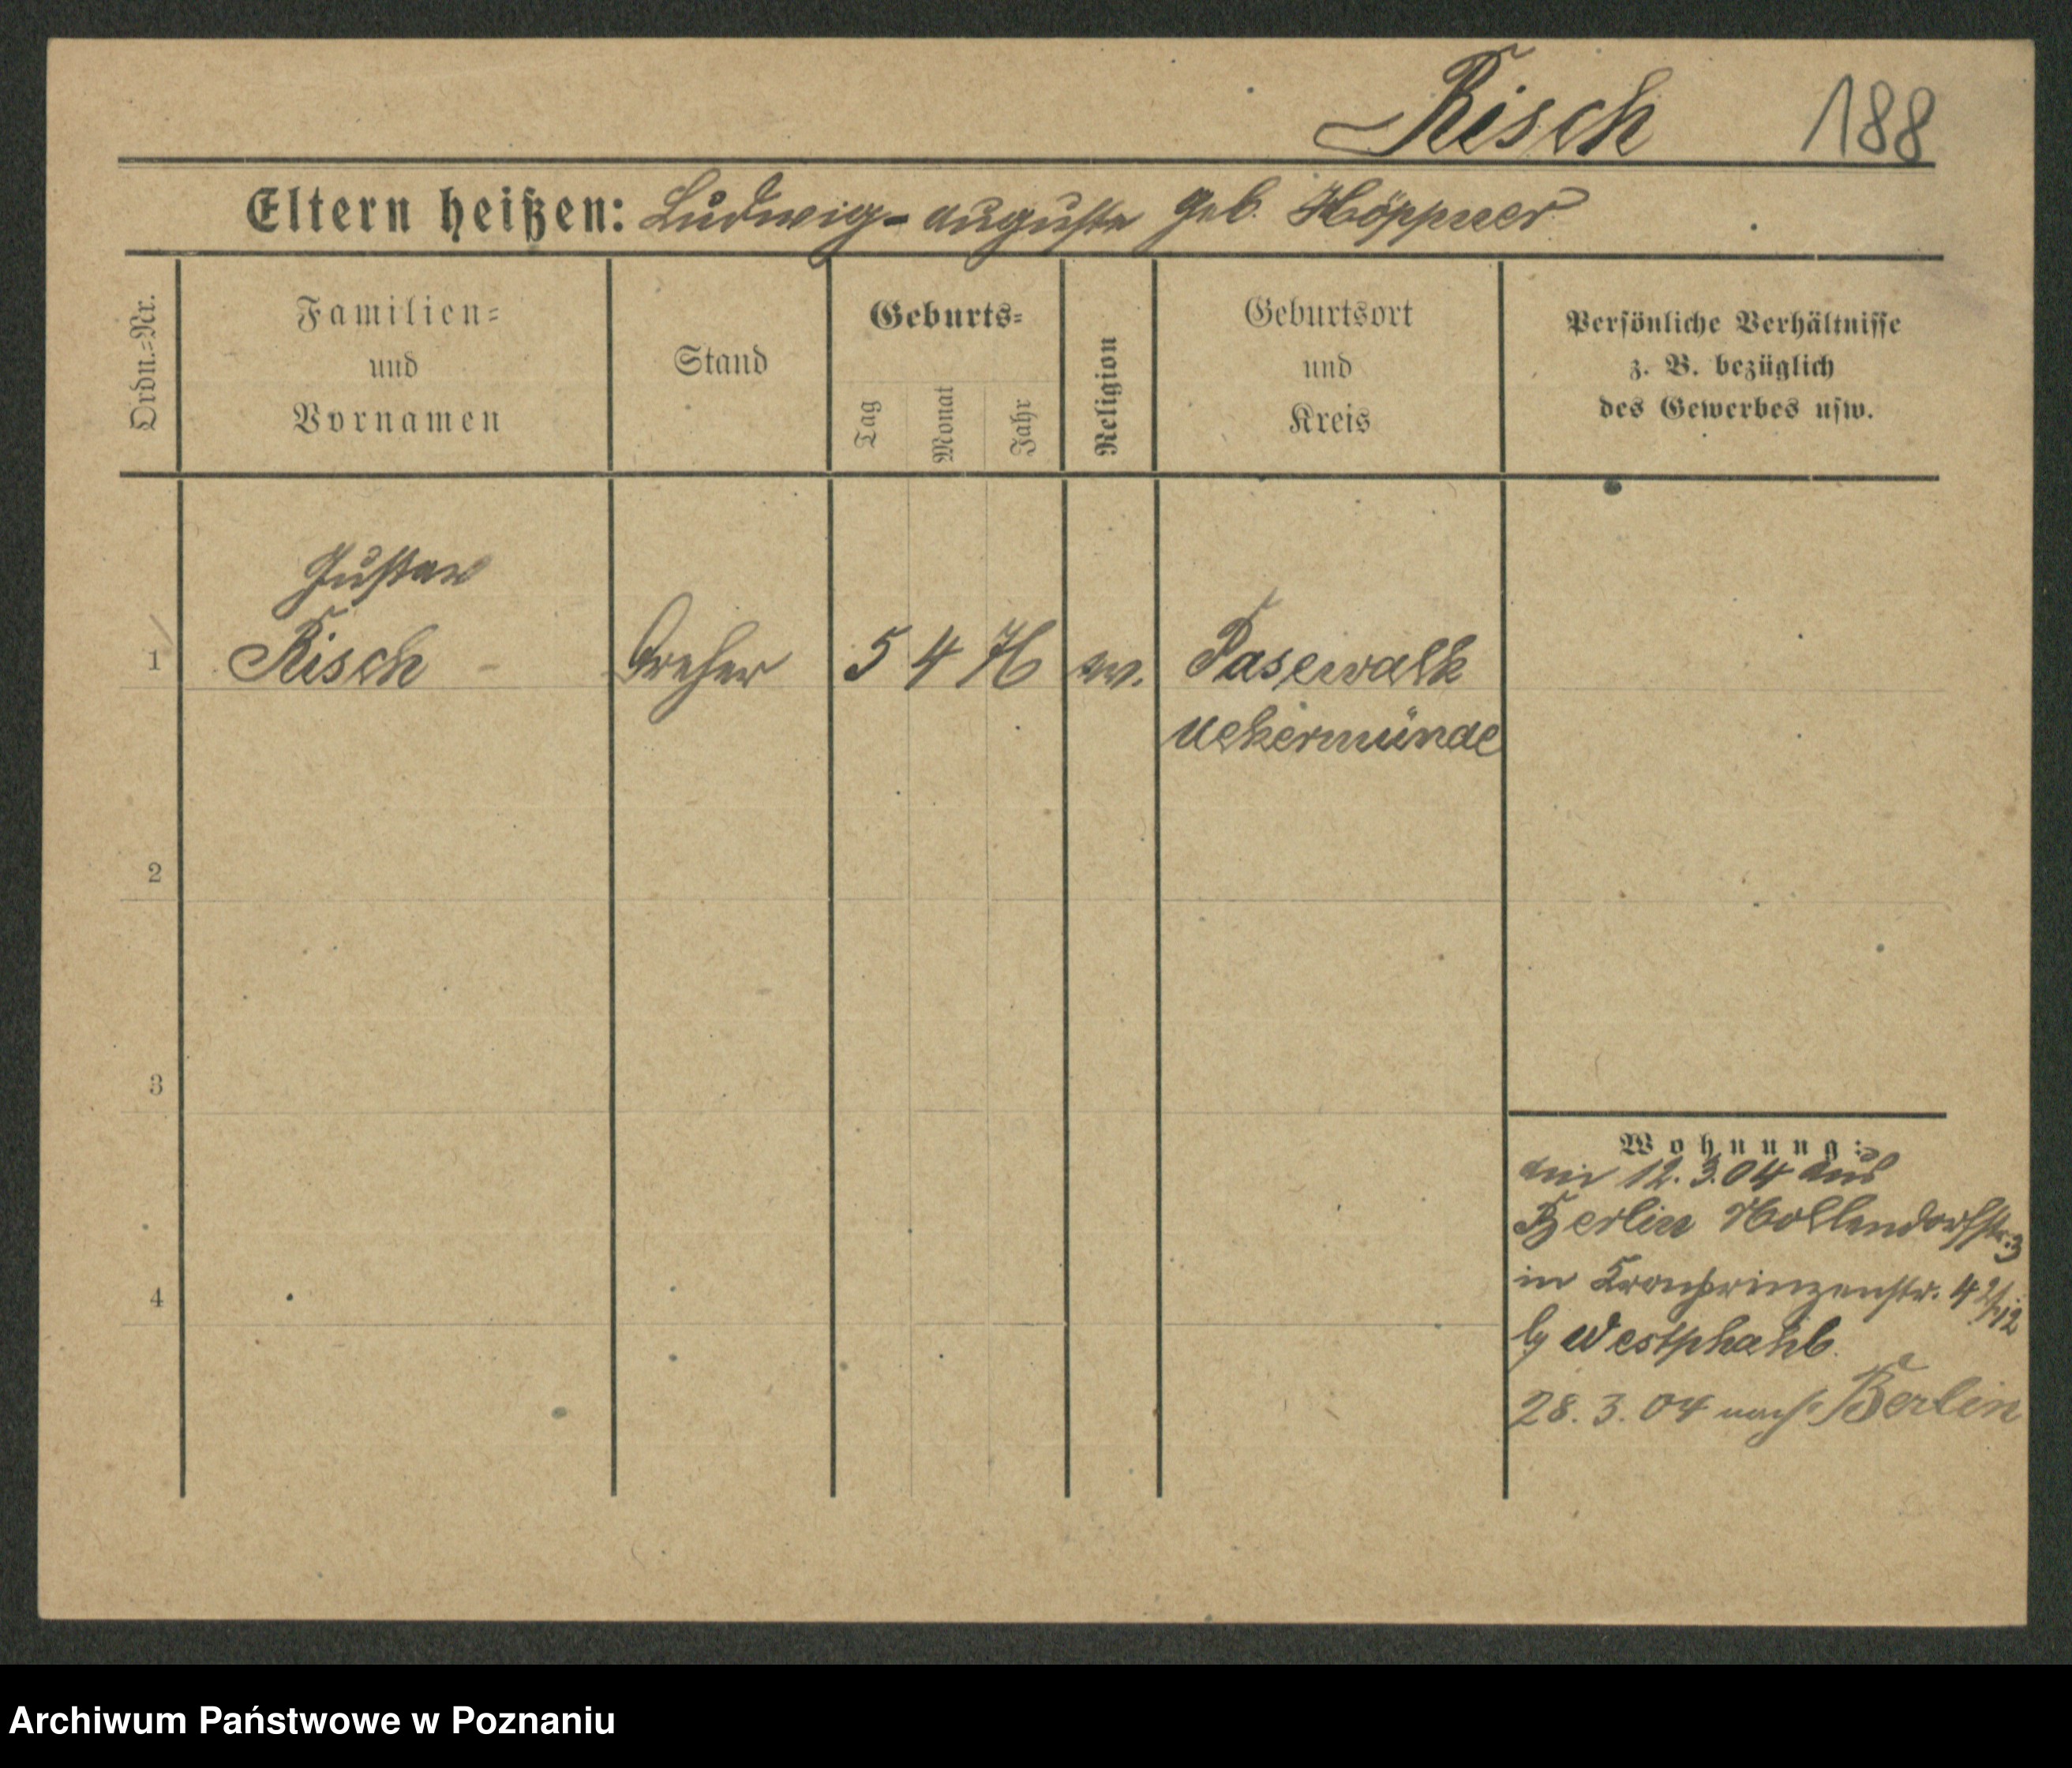 Risch 188
Eltern heißen: Ludwig - Auguste geb. Höppner
Ordn.=Nr.
Familien=
und
Vornamen
Stand
Geburts=
Tag
Monat
Jahr
Religion
Geburtsort
und
Kreis
Persönliche Verhältnisse
z. B. bezüglich
des Gewerbes usw.
Gustav
1 Risch Dreher 5 4 76 ev. Pasewalk
Uekermünde
2
3
4
Wohnung:
am 12.3.04 aus
Berlin Nollendorfstr. 3
in Kronprinzenstr. 4
by Westphahl
28.3.04 nach Berlin
Archiwum Państwowe w Poznaniu